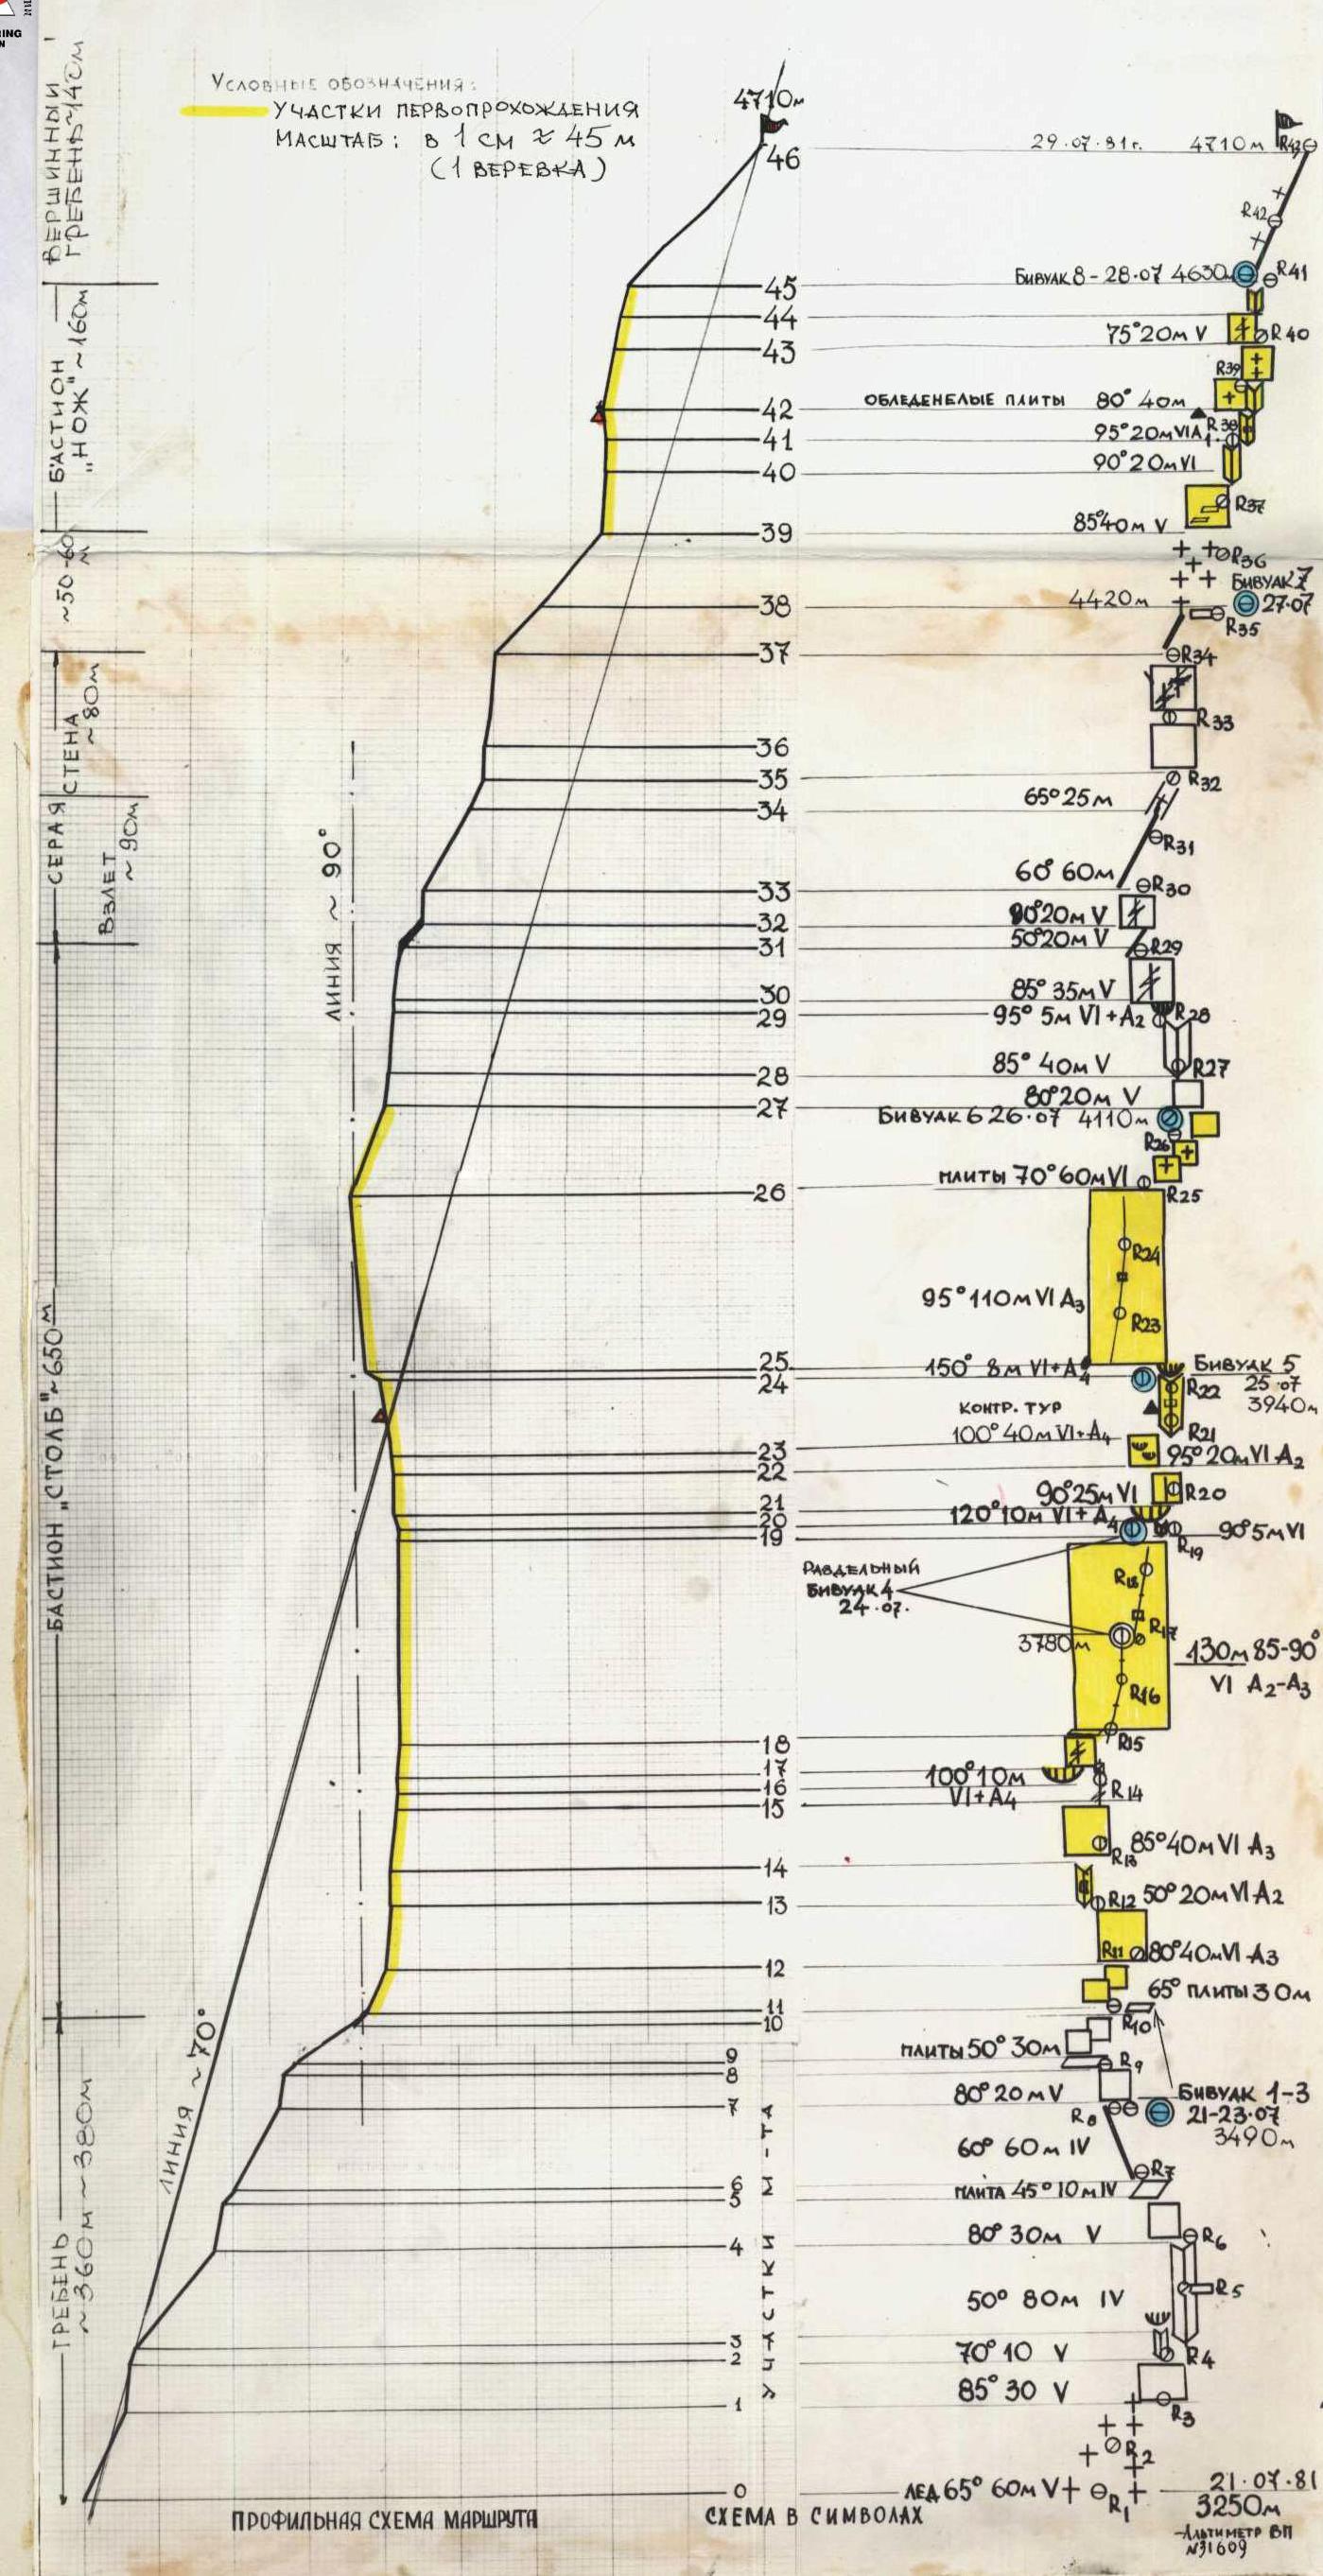 RING
N
Условные обозначения:
УЧАСТКИ ПЕРВОПРОХОЖДЕНИЯ
МАСШТАБ: В 1 СМ ≈ 45 М
(1 ВЕРЕВКА)
ВЕРШИННЫЙ
ГРЕБЕНЬ ~140М
БАСТИОН
„НОЖ" ~160М
~50-60
М
СЕРАЯ СТЕНА
~80М
ВЗЛЕТ
~90М
БАСТИОН „СТОЛБ" ~650М
ГРЕБЕНЬ
~360М ~380М
ЛИНИЯ ~90°
ЛИНИЯ ~70°
4710М
46
45
44
43
42
41
40
39
38
37
36
35
34
33
32
31
30
29
28
27
26
25
24
23
22
21
20
19
18
17
16
15
14
13
12
11
10
9
8
7
6
5
4
3
2
1
0
УЧАСТКИ М-ТА
29.07.81г. 4710М R43
R42
БИВУАК 8-28.07 4630М R41
75°20М V R40
R39
ОБЛЕДЕНЕЛЫЕ ПЛИТЫ 80°40М
95°20М VI A1 R38
90°20М VI
R37
85°40М V
R36
БИВУАК 7
4420М 27.07
R35
R34
R33
R32
65°25М
R31
60°60М
R30
90°20М V
50°20М V R29
85°35М V
95°5М VI+A2 R28
85°40М V R27
80°20М V
БИВУАК 6 26.07 4110М
R26
ПЛИТЫ 70°60М VI
R25
R24
95°110М VI A3
R23
150°8М VI+A4 БИВУАК 5
R22 25.07
3940М
КОНТР. ТУР
R21
100°40М VI+A4
95°20М VI A2
90°25М VI R20
120°10М VI+A4 90°5М VI
R19
РАЗДЕЛЬНЫЙ
БИВУАК 4
24.07.
R18
R17
3780М
130М 85-90°
VI A2-A3
R16
R15
100°10М
VI+A4
R14
85°40М VI A3
R13
R12 50°20М VI A2
R11 80°40М VI A3
65° ПЛИТЫ 30М
R10
ПЛИТЫ 50°30М
R9
80°20М V
БИВУАК 1-3
R8 21-23.07
3490М
60°60М IV
R7
ПЛИТА 45°10М IV
80°30М V R6
50°80М IV R5
70°10 V R4
85°30 V
R3
R2
ЛЕД 65°60М V R1
21.07.81
3250М
-АЛЬТИМЕТР ВП
N31609
ПРОФИЛЬНАЯ СХЕМА МАРШРУТА
СХЕМА В СИМВОЛАХ